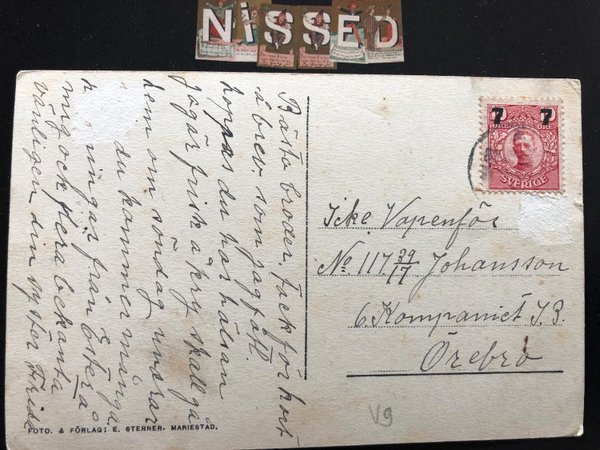 NISSED
Bästa broder. Tack för kort
å brev som jag fått.
hoppas du har hälsan
jag är frisk å kry skall gå
hem om söndag undrar
du kommer många
ningar från Ester å
mig och flera bekanta
vänligen din syster Frida
7 7
SVERIGE
Icke Vapenför
No 117 39/17 Johansson
6. Kompaniet I.3.
Örebro
V9
FOTO. & FÖRLAG: E. STERNER. MARIESTAD.